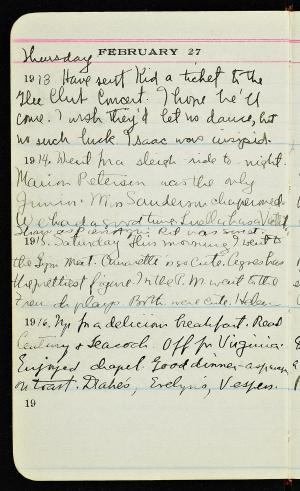 Thursday
FEBRUARY 27
1913 Have sent Kid a ticket to the
Glee Club Concert. I hope he'll
come. I wish they'd let us dance, but
no such luck. Isaac was insipid.
1914. Went for a sleigh ride to night.
Marion Petersen was the only
Junior. Miss Sanderson chaperoned
We had a good time. Luella has a
Kid was
1915. Saturday. This morning I went to
the Gym Meet. was cute. Agnes has
the prettiest figure. In the P.M. went to the
French plays. Both were cute. Helen
1916. Up for a delicious breakfast. Read
Century & Peacock. Off for Virginia.
Enjoyed chapel. Good dinner - asparagus
on toast. Drake's, Evelyn's, Vespers.
19